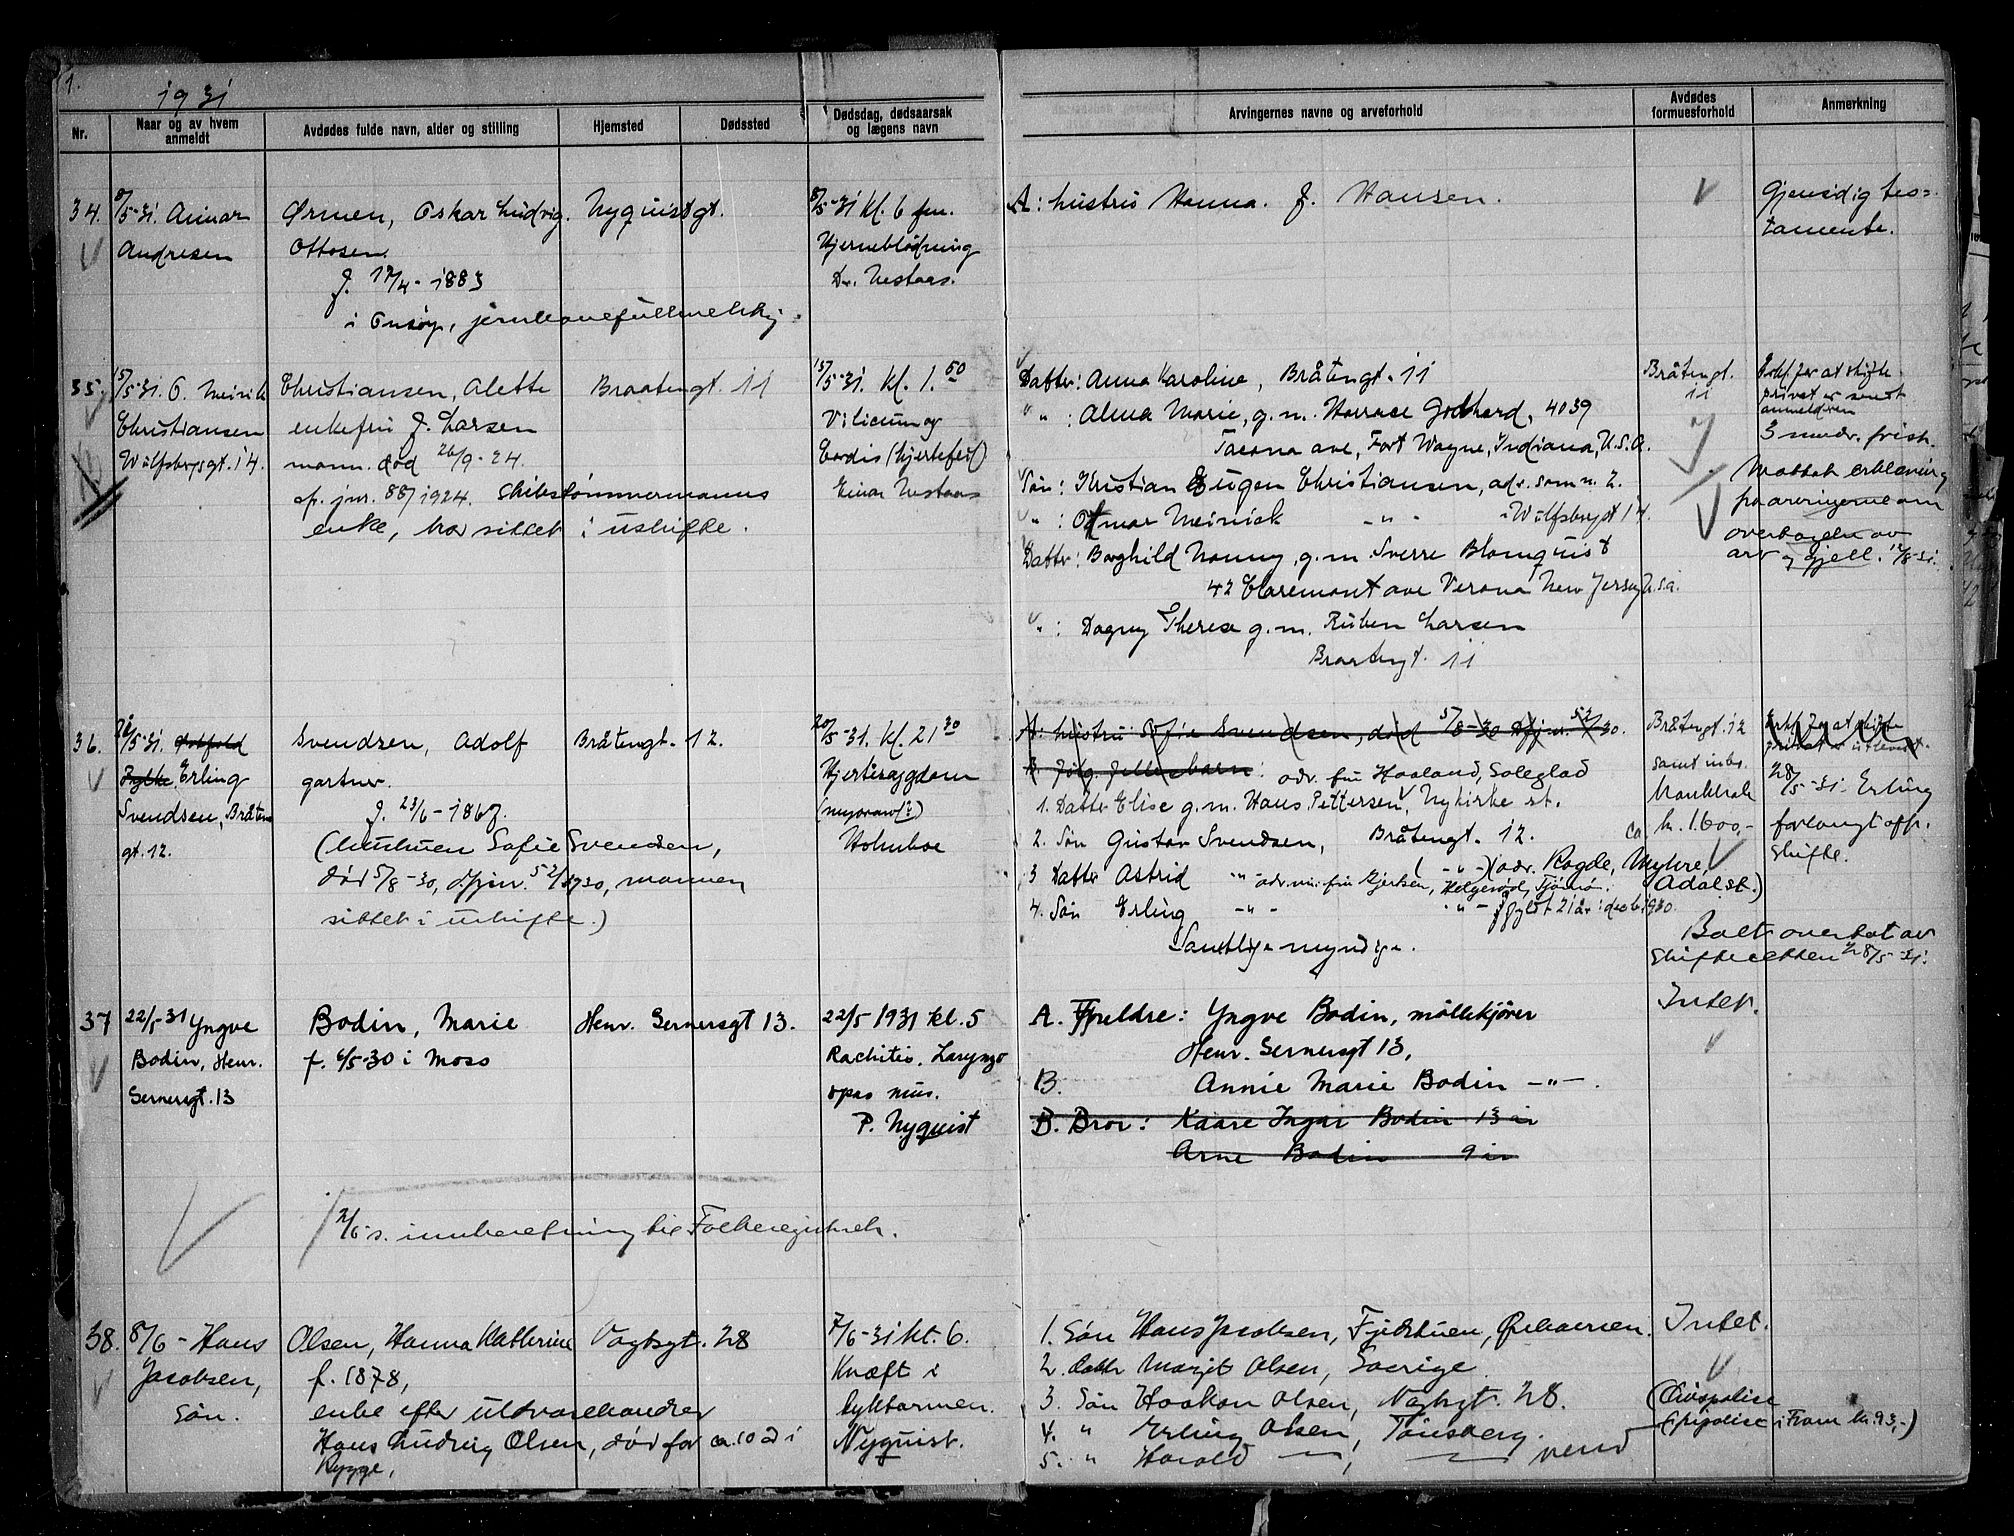 1.
1931
Nr.
Naar og av hvem anmeldt
Avdødes fulde navn, alder og stilling
Hjemsted
Dødssted
Dødsdag, dødsaarsak og lægens navn
Arvingernes navne og arveforhold
Avdødes formuesforhold
Anmerkning
34. 8/5-31. Andresen
Ørmen, Oskar Ludvig Ottosen.
f. 17/4-1883
i Onsøy,
Nyquistgt.
8/5-31 kl. 6 fm.
Hjerneblødning
Dr. Nestaas.
A: hustru Hanna f. Hansen.
Gjensidig tes=
tamente.
35. 15/5-31. O. Meinik
Christiansen
Wulfsbergsgt. 14.
Christiansen, Alette
enkefru f. Larsen
mann. død 26/9-24.
jnr. 88/1924. Skibstømmermanns
enke, har sittet i uskifte.
Braatengt. 11
15/5-31. kl. 1.50
Vilicum og
Cordis (hjertefeil)
Einar Nestaas
Datter: Anna Karoline, Bråtengt. 11
" : Alma Marie, g.m. Horrace Godhard, 4039
Tacona ave, Fort Wayne, Indiana, U.S.A.
Søn: Kristian Eugen Christiansen, adr. som n. 2.
" : Otmar Meinick - " - Wulfsbergst 14.
Datter: Borghild Nanny, g.m. Sverre Blomquist
42 Claremont ave Verona New Jersey U.S.A.
" : Dagny Therese g.m. Ruben Larsen
Braatengt. 11
Bråtengt.
11
3 mndr. frist.
Mottat erklæring
fra arvingerne om
overtagelse av
arv og gjeld. 12/8-31.
36. /5-31. Østfold
Fylke Erling
Svendsen, Bråten
gt. 12.
Svendsen, Adolf
gartner.
f. 23/6-1867.
(hustruen Sofie Svendsen,
død 5/8-30, dfjnr. 52/1930, mannen
sittet i uskifte.)
Bråtengt. 12.
20/5-31. kl. 21 30
Hjertesygdom
Holmboe
A: hustru Sofie Svendsen, død 5/8-30 dfjnr. 52/30.
adr. fru Haaland, Soleglad
1. Datter Elise g.m. Hans Pettersen, Nykirke st.
2. Søn Gustav Svendsen, Bråtengt. 12.
3 Datter Astrid - " - (adr. Rogde, Myhre,
Adalst.)
4. Søn Erling - " - fyldt 21 år i decb. 1930.
Samtlige myndige.
Bråtengt. 12
samt inbo.
Bankbok
ca kr. 1600,-
28/5-31. Erling
forlangt off.
skifte.
Boet overtat av
skifteretten 28/5-31.
37 22/5-31 Yngve
Bodin, Henr.
Gernersgt. 13
Bodin, Marie
f. 6/5-30 i Moss
Henr. Gernersgt 13.
22/5 1931 kl. 5
Rachitis, Laryngo
spasmus.
P. Nyquist
A. Foreldre: Yngve Bodin, møllekjører
Henr. Gernersgt 13,
B. Annie Marie Bodin - " - .
B. Bror: Kaare Ingar Bodin 13 år
Arne Bodin 9 år
Intet.
2/6 s. innberetning til Folkeregistret.
38. 8/6 - Hans
Jacobsen,
Søn.
Olsen, Hanna Kathrine
f. 1878,
enke efter
Hans Ludvig Olsen, død for ca. 10 år i
Rygge,
Vogtsgt. 28
7/6-31 kl. 6.
Kræft i
tyktarmen.
Nyquist.
1. Søn Hans Jacobsen,
2. datter Margit Olsen, Sverige
3. Søn Haakon Olsen, Vogtsgt. 28.
4. " Erling Olsen, Tønsberg.
5. " Harald
vend
Intet.
(Livspolise
i Fram kr. 93,-)